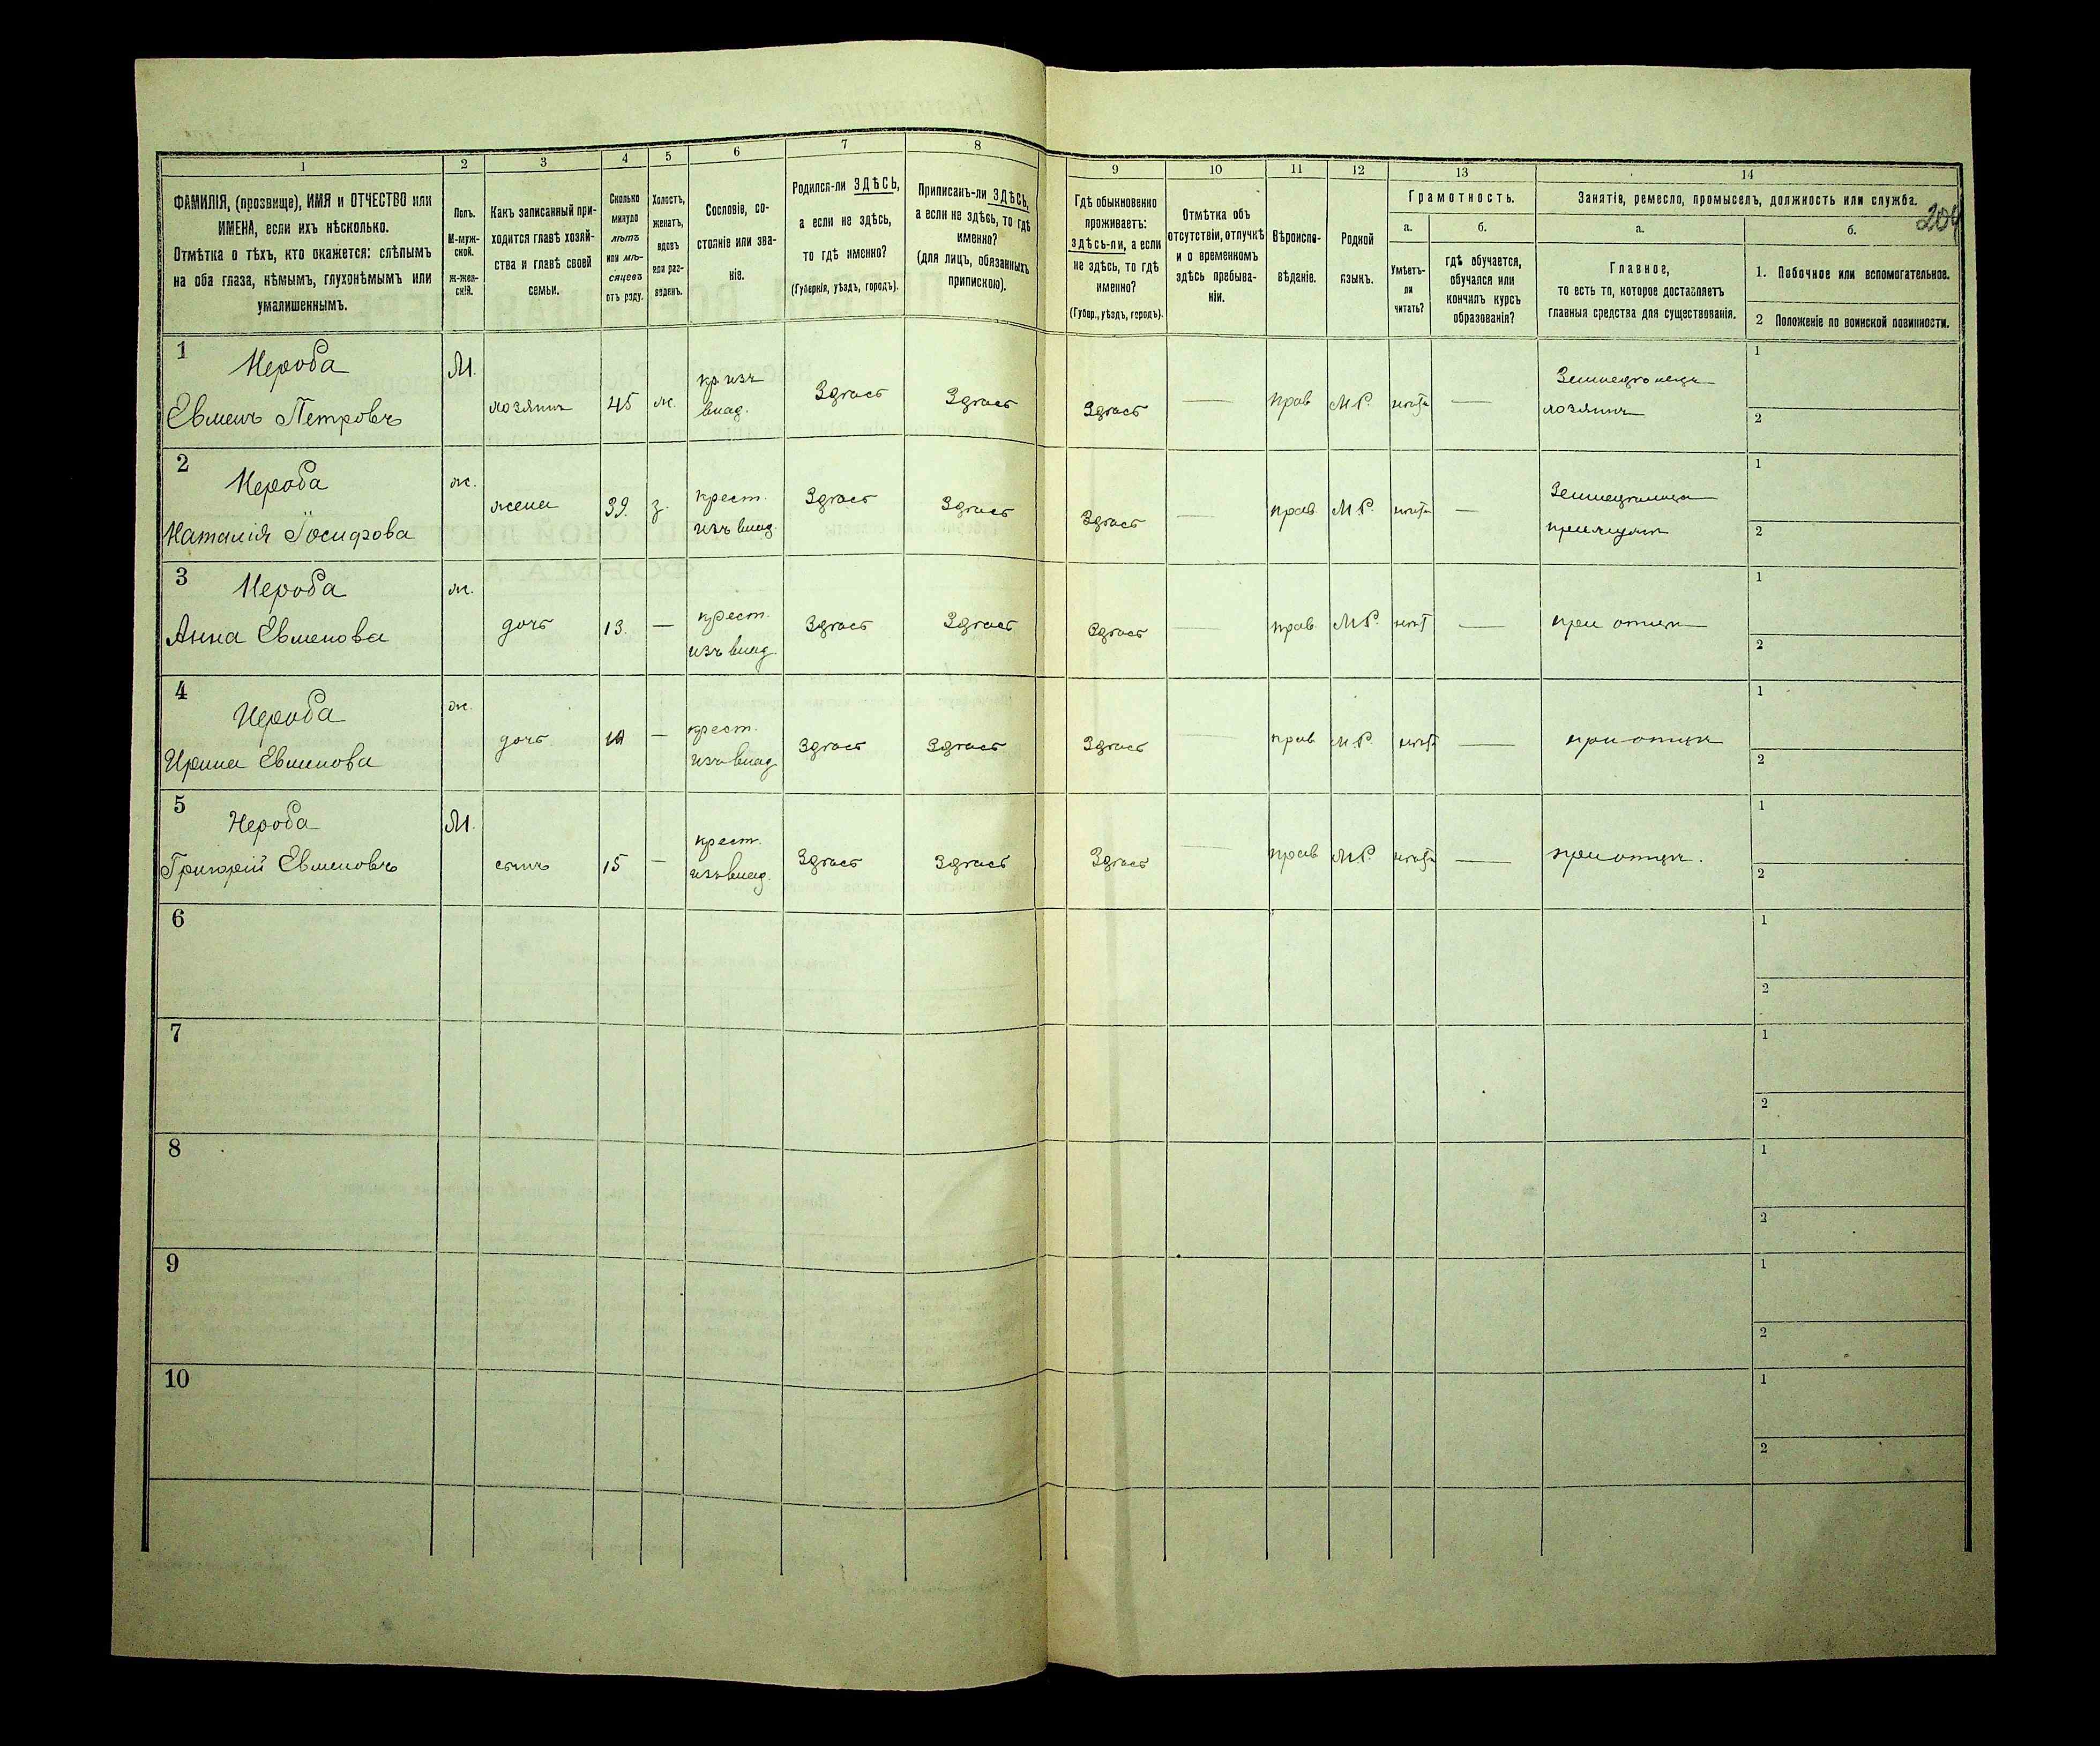 1
2
3
4
5
6
7
8
ФАМИЛІЯ, (прозвище), ИМЯ и ОТЧЕСТВО или
ИМЕНА, если ихъ нѣсколько.
Отмѣтка о тѣхъ, кто окажется: слѣпымъ
на оба глаза, нѣмымъ, глухонѣмымъ или
умалишеннымъ.
Полъ.
М-муж-
ской.
Ж-жен-
скій.
Какъ записанный при-
ходится главѣ хозяй-
ства и главѣ своей
семьи.
Сколько
минуло
лѣтъ
или мѣ-
сяцевъ
отъ роду.
Холостъ,
женатъ,
вдовъ
или раз-
веденъ.
Сословіе, со-
стояніе или зва-
ніе.
Родился-ли ЗДѢСЬ,
а если не здѣсь,
то гдѣ именно?
(Губернія, уѣздъ, городъ).
Приписанъ-ли ЗДѢСЬ,
а если не здѣсь, то гдѣ
именно?
(для лицъ, обязанныхъ
припискою).
9
10
11
12
13
14
Гдѣ обыкновенно
проживаетъ:
здѣсь-ли, а если
не здѣсь, то гдѣ
именно?
(Губер., уѣздъ, городъ).
Отмѣтка объ
отсутствіи, отлучкѣ
и о временномъ
здѣсь пребыва-
ніи.
Вѣроиспо-
вѣданіе.
Родной
языкъ.
Грамотность.
а.
Умѣетъ-
ли
читать?
б.
гдѣ обучается,
обучался или
кончилъ курсъ
образованія?
Занятіе, ремесло, промыселъ, должность или служба.
204
а.
Главное,
то есть то, которое доставляетъ
главныя средства для существованія.
б.
1. Побочное или вспомогательное.
2 Положеніе по воинской повинности.
1 Нероба М. кр изъ Здѣсь Здѣсь Здѣсь — прав М.Р. нѣтъ — Земледѣлецъ 1
Евменъ Петровъ хозяинъ 45 ж. влад. хозяинъ 2
2 Нероба ж. жена 39. з. крест. Здѣсь Здѣсь Здѣсь — прав М.Р. нѣтъ — 1
Наталія Іосифова изъ влад. 2
3 Нероба ж. крест. 1
Анна Евменова дочь 13. — изъ влад. Здѣсь Здѣсь Здѣсь — прав. М.Р. нѣт — при отцѣ 2
4 Нероба ж. крест. 1
Ирина Евменова дочь — изъ влад Здѣсь Здѣсь Здѣсь — прав М.Р. нѣтъ — при отцѣ 2
5 Нероба М. крест. 1
Григорій Евменовъ сынъ 15 — изъ влад. Здѣсь Здѣсь Здѣсь — прав М.Р. нѣтъ — при отцѣ. 2
6 1
2
7 1
2
8 1
2
9 1
2
10 1
2